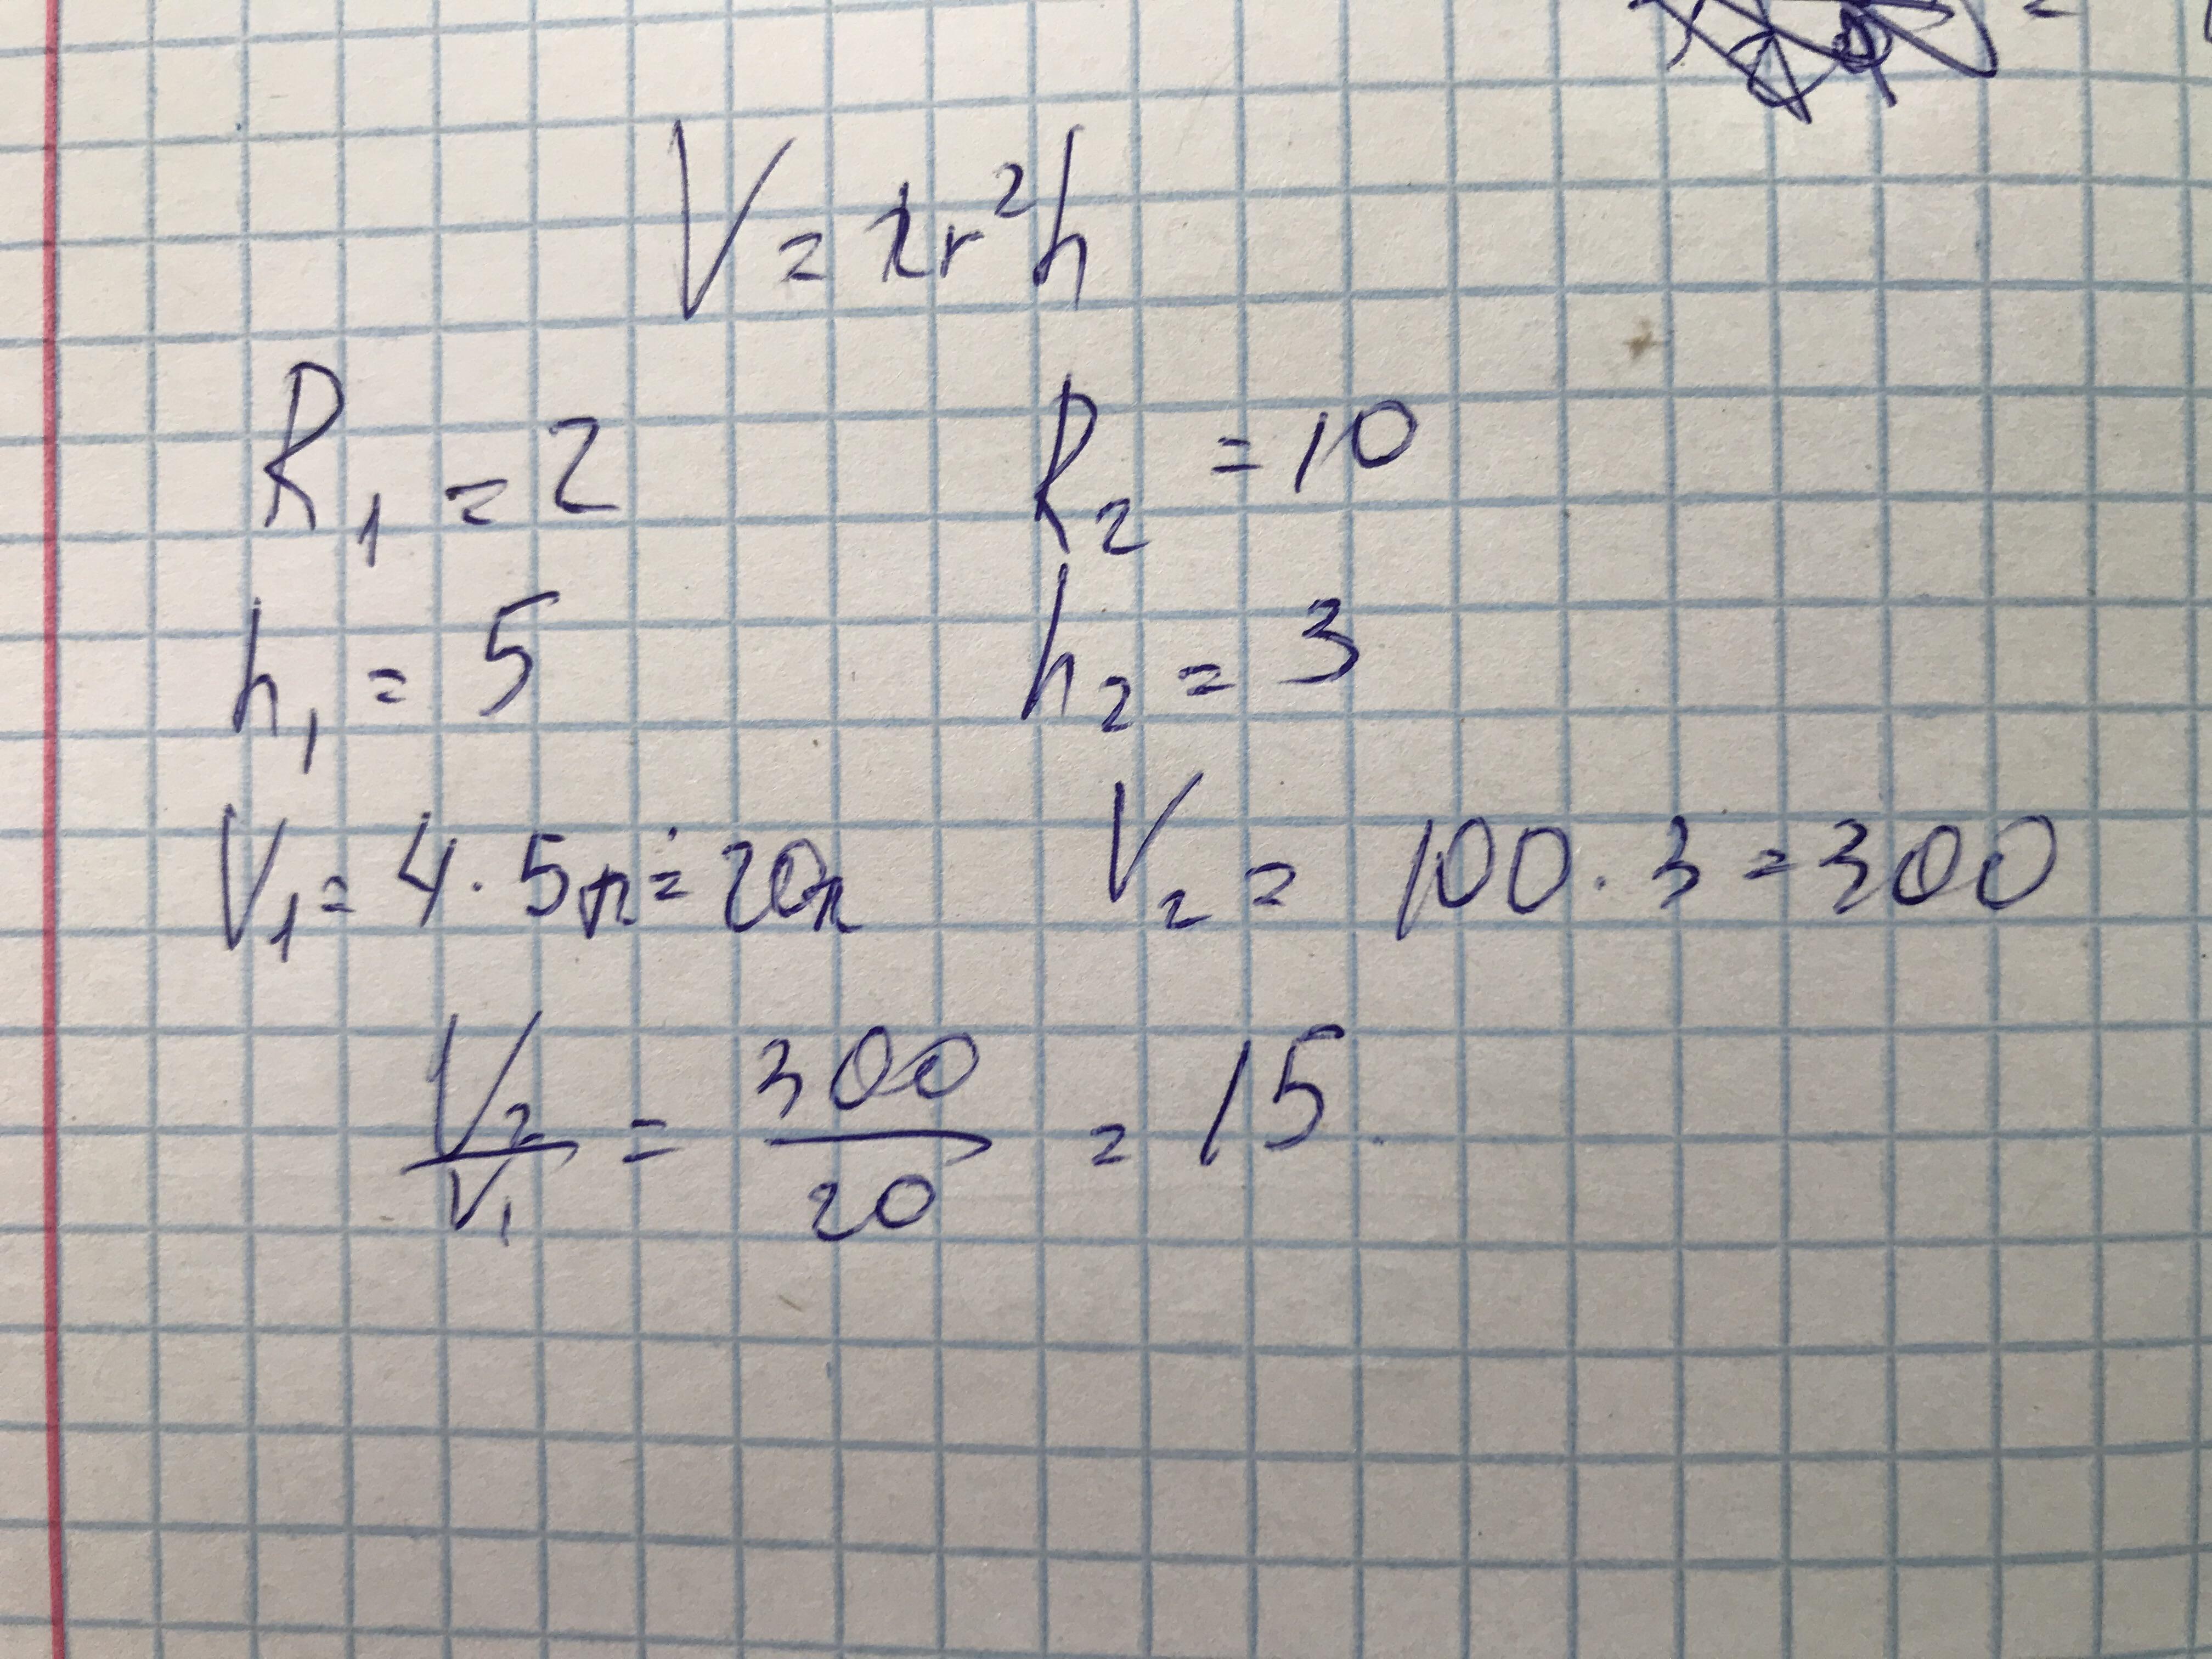 V = πr²h
R₁ = 2 R₂ = 10
h₁ = 5 h₂ = 3
V₁ = 4 · 5π = 20π V₂ = 100 · 3 = 300
V₂/V₁ = 300/20 = 15.